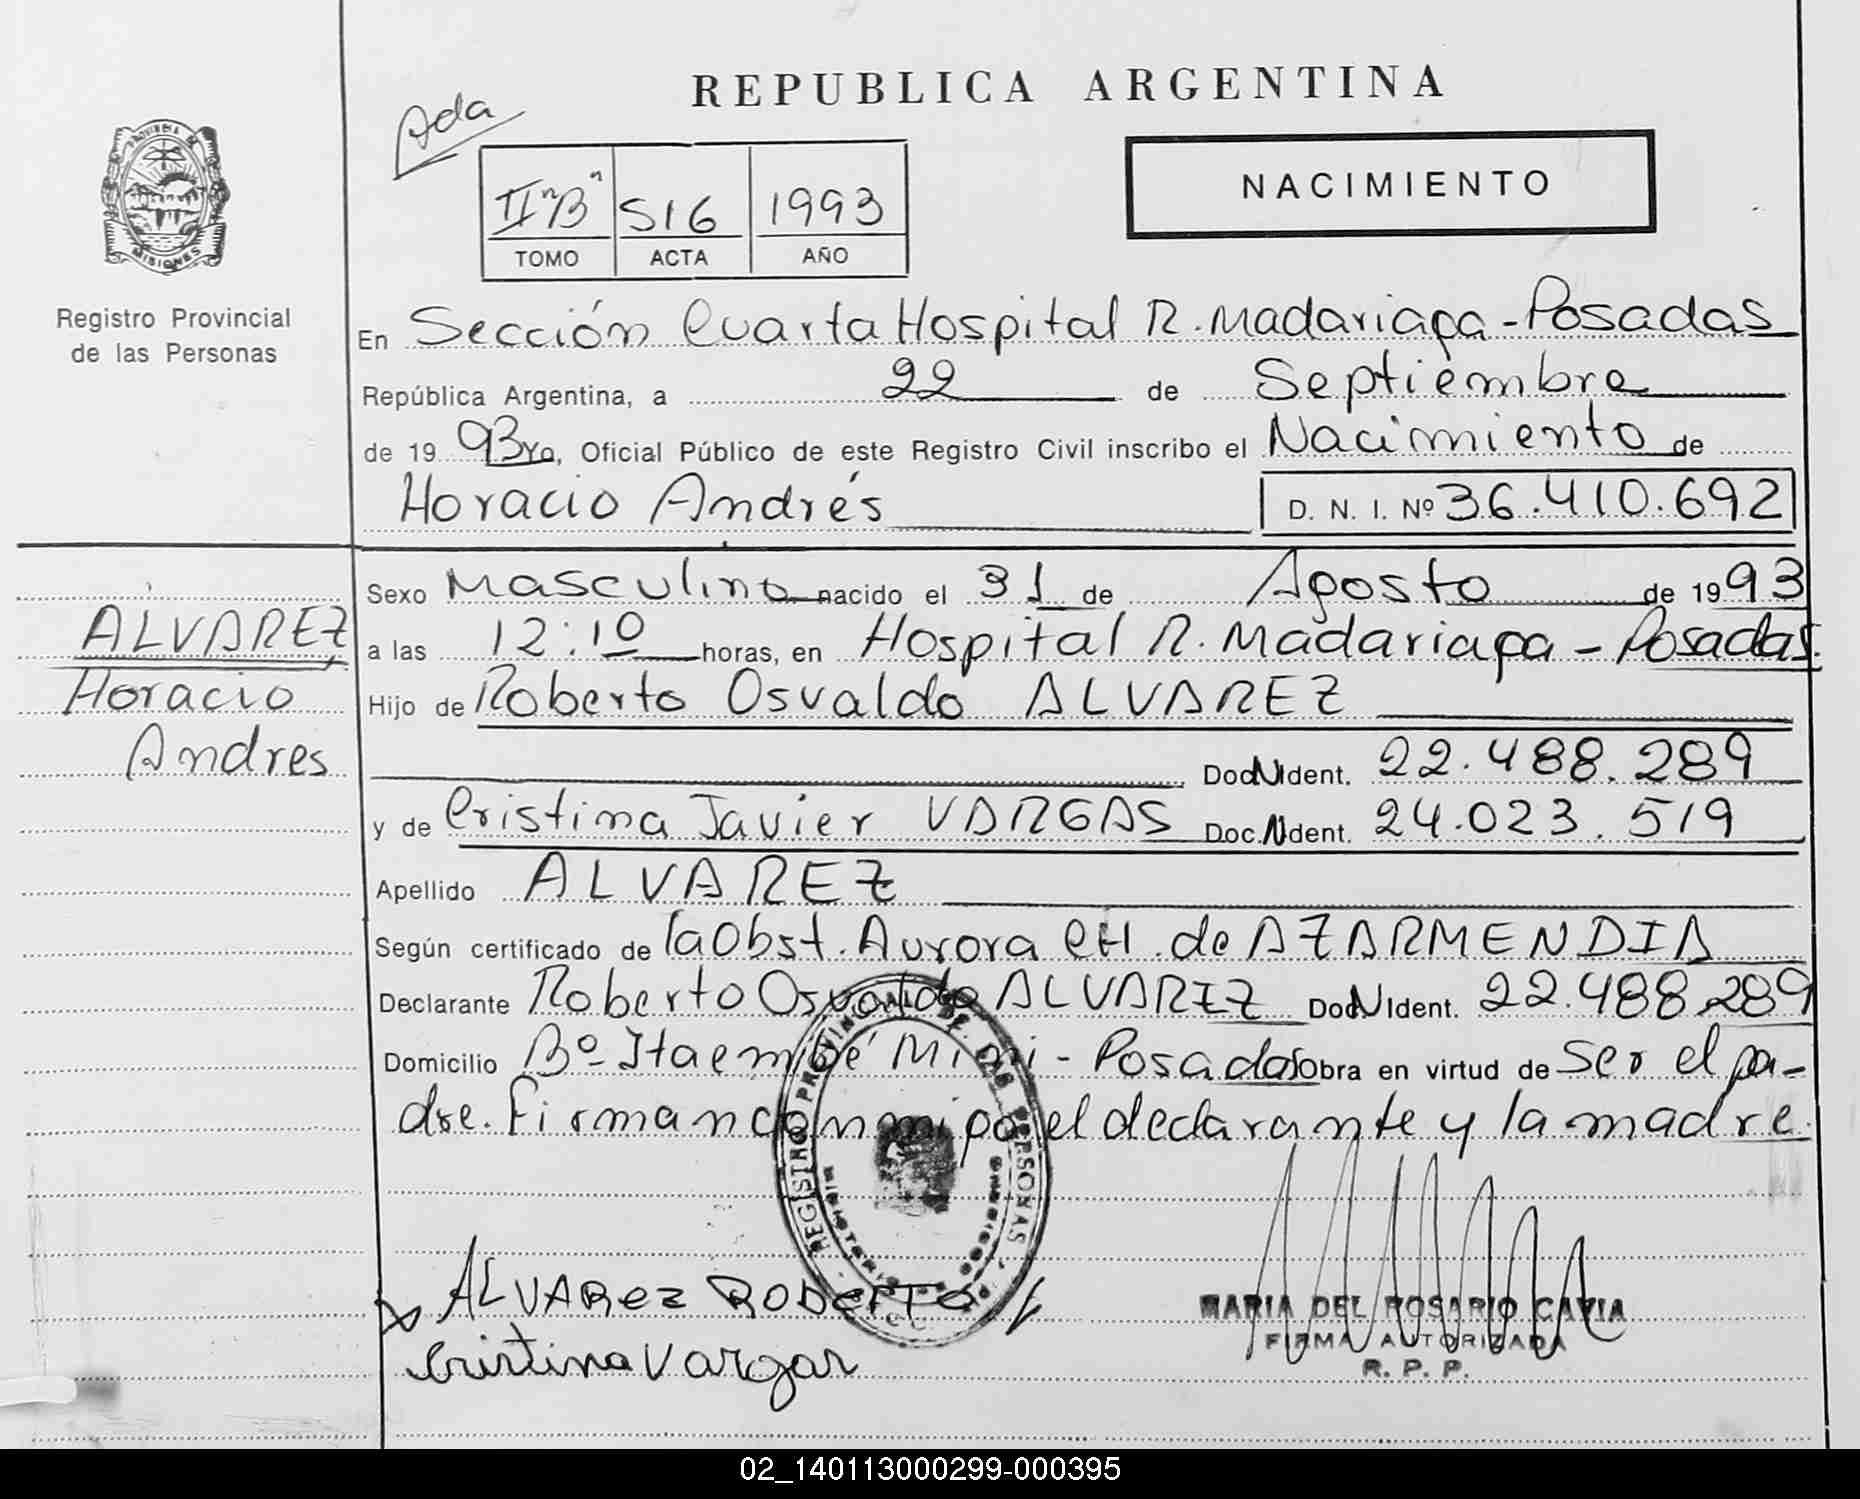 REPUBLICA ARGENTINA
Ada
PROVINCIA DE
MISIONES
Registro Provincial
de las Personas
NACIMIENTO
II "B" 516 1993
TOMO ACTA AÑO
En Sección Cuarta Hospital R. Madariaga - Posadas
República Argentina, a 22 de Septiembre
de 19 93 Yo, Oficial Público de este Registro Civil inscribo el Nacimiento de
Horacio Andrés D. N. I. Nº 36.410.692
Sexo Masculino nacido el 31 de Agosto de 19 93
ALVAREZ
a las 12:10 horas, en Hospital R. Madariaga - Posadas.
Horacio
Hijo de Roberto Osvaldo ALVAREZ
Andres
Doc N Ident. 22.488.289
y de Cristina Javier VARGAS Doc. N Ident. 24.023.519
Apellido ALVAREZ
Según certificado de la Obst. Aurora CH. de AZARMENDIA
Declarante Roberto Osvaldo ALVAREZ Doc N Ident. 22.488.289
Domicilio Bº Itaembé Mini - Posadas obra en virtud de Ser el pa-
dre. Firman conmigo el declarante y la madre.
REGISTRO PROVINCIAL DE LAS PERSONAS
ALVAREZ ROBERTO
Cristina Vargas
MARIA DEL ROSARIO CAVIA
FIRMA AUTORIZADA
R. P. P.
02_140113000299-000395